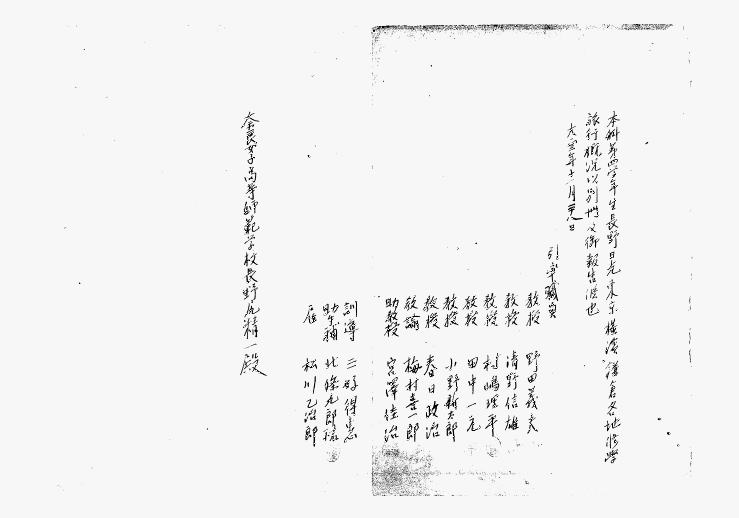 本科第四学年生長野日光東京横濱鎌倉各地修学
旅行概況以別冊及御報告候也
大正 年十一月 日
引率職員
教授 野田義夫
教授 清野信雄
教授 村嶋理平
教授 田中一
教授 小野 太郎
教授 春日政治
教諭 梅村 一郎
助教授 宮澤佳治
訓導 三好得恵
助手補 北條九郎
雇 松川乙治郎
奈良女子高等師範学校長野尻精一殿